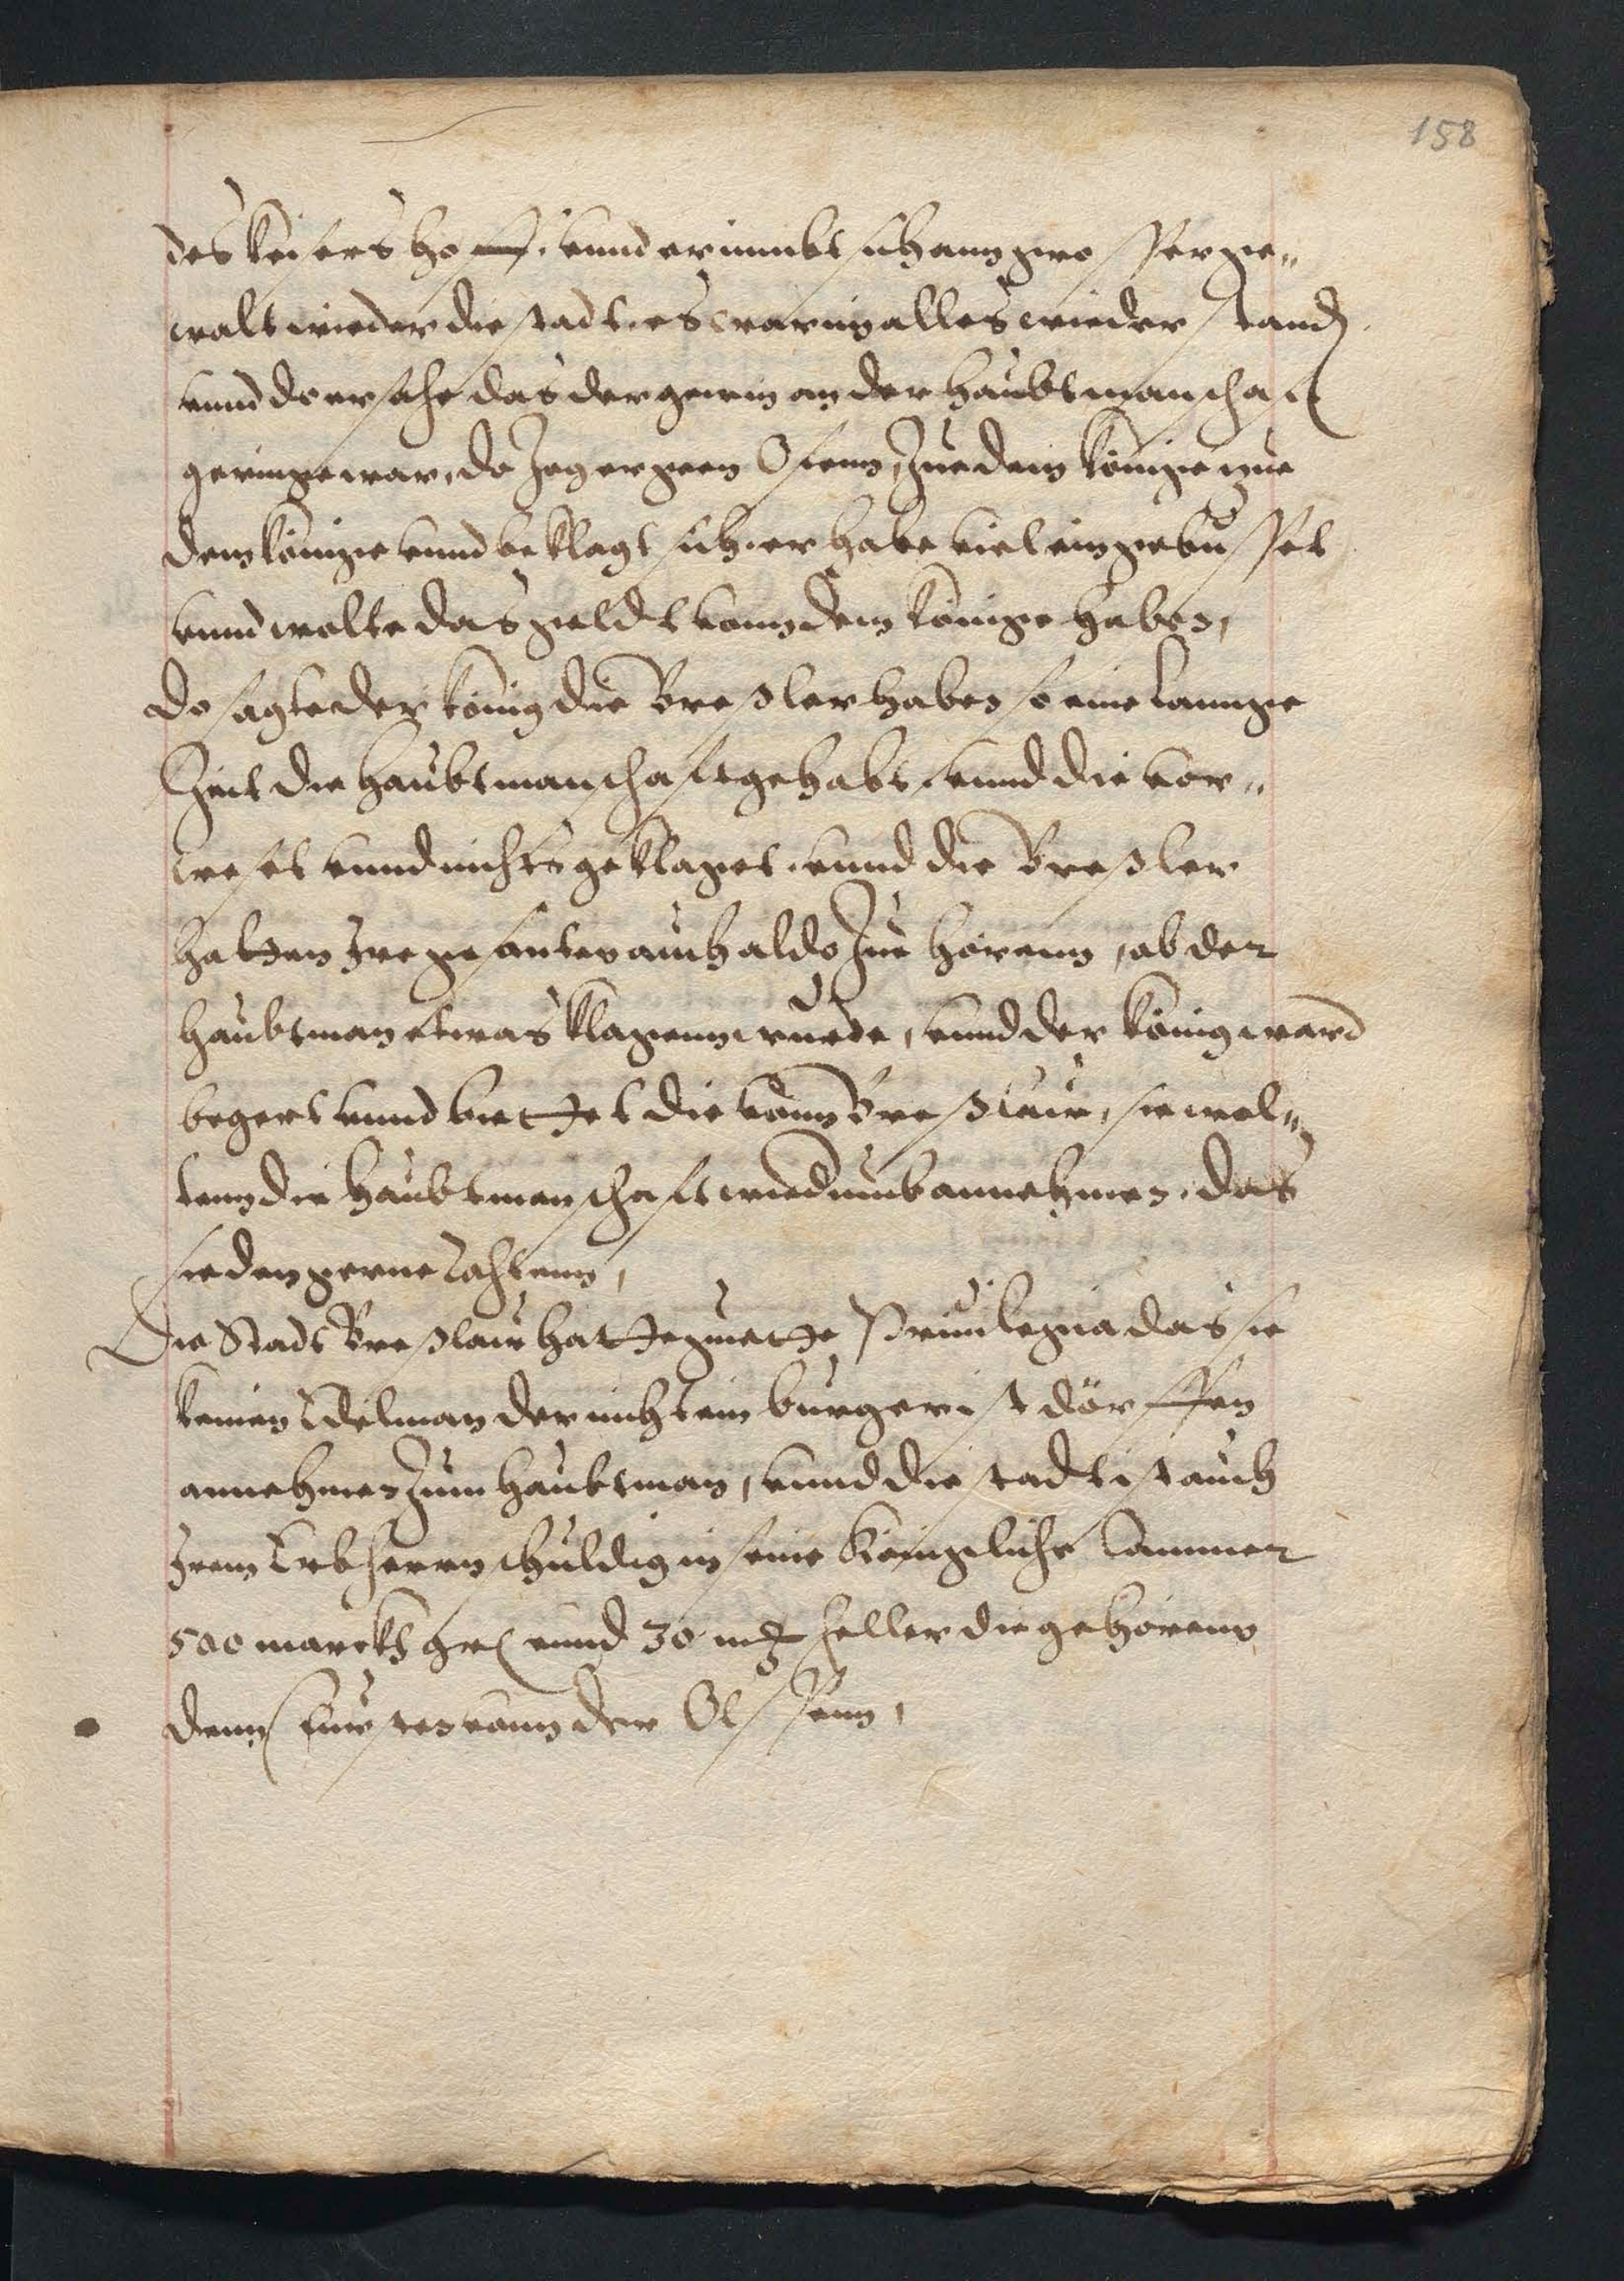 158
des keisers hoff. vnnd er nimbt sich ann grosser ge„
walt wieder die stadt. es war im alles wieder standt
vnnd do er sahe das der gewin an der haubtmanschaft
geringe war, do zog er geen Ofenn, zue dem könige zue
dem könige vnnd beklagt sich. er habe viel eingebusset
vnnd wolte das geldt vonn dem könige haben,
do sagte der könig die Breßler haben so eine lannge
Zeit die haubtmanschaft gehabt. vnnd die vor„
weset vnnd nichts geklaget. vnnd die Breßler
hatten Ire gesanten auch aldo zue hörenn, ob der
haubtman etwas klagenn wurde, vnnd der könig ward
begert vnnd bettet die vonn Breßlaw, sie wol„
tenn die haubtmanschaft wiedumb annehmen. das
sie den gerne tahtenn,
Die Stadt Breßlaw hatt gutte Priuilegia das sie
keinen Edelman der nicht ein burger ist dörffen
annehmen zum haubtman, vnnd die stadt ist auch
Irem Erbherrn schuldig in seine Königliche Cammer
500 marckt gr vnnd 30 mg heller die gehörenn
denn furstenn vonn der Olssenn,